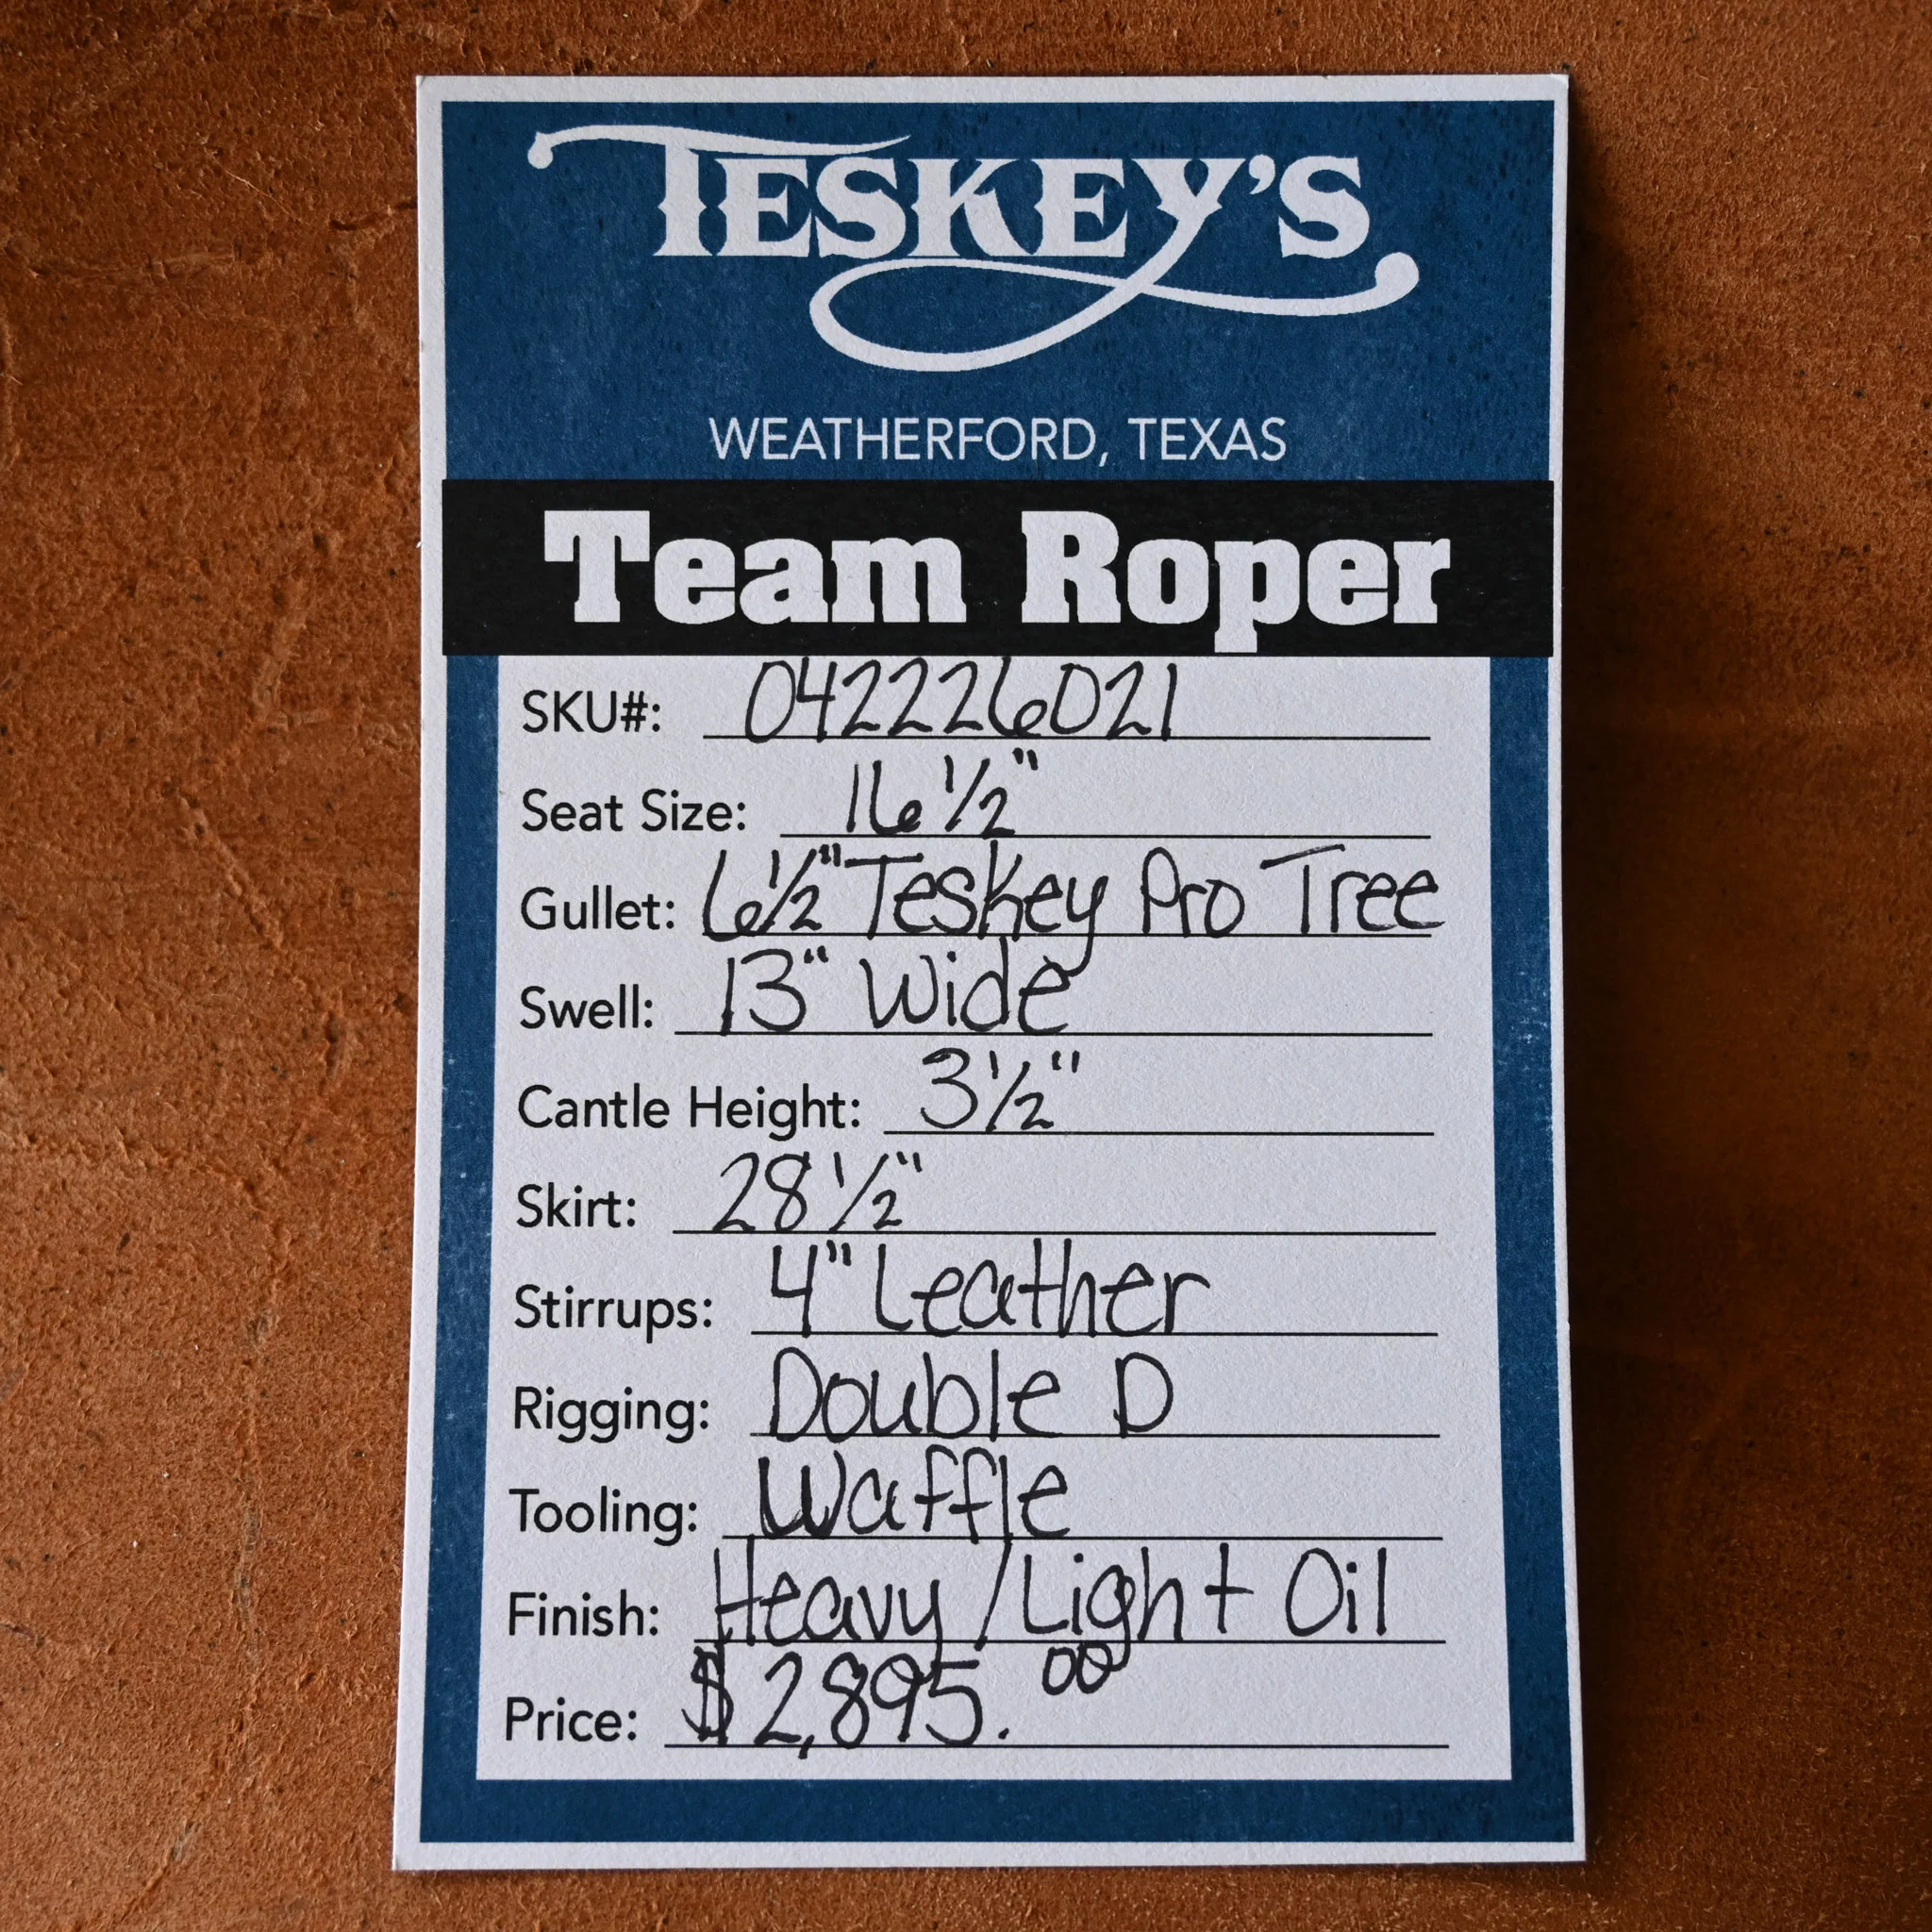 TESKEY'S
WEATHERFORD, TEXAS
Team Roper
SKU#: 042226021
Seat Size: 16 1/2"
Gullet: 6 1/2" Teskey Pro Tree
Swell: 13" Wide
Cantle Height: 3 1/2"
Skirt: 28 1/2"
Stirrups: 4" Leather
Rigging: Double D
Tooling: Waffle
Finish: Heavy/Light Oil
Price: $2,895.00